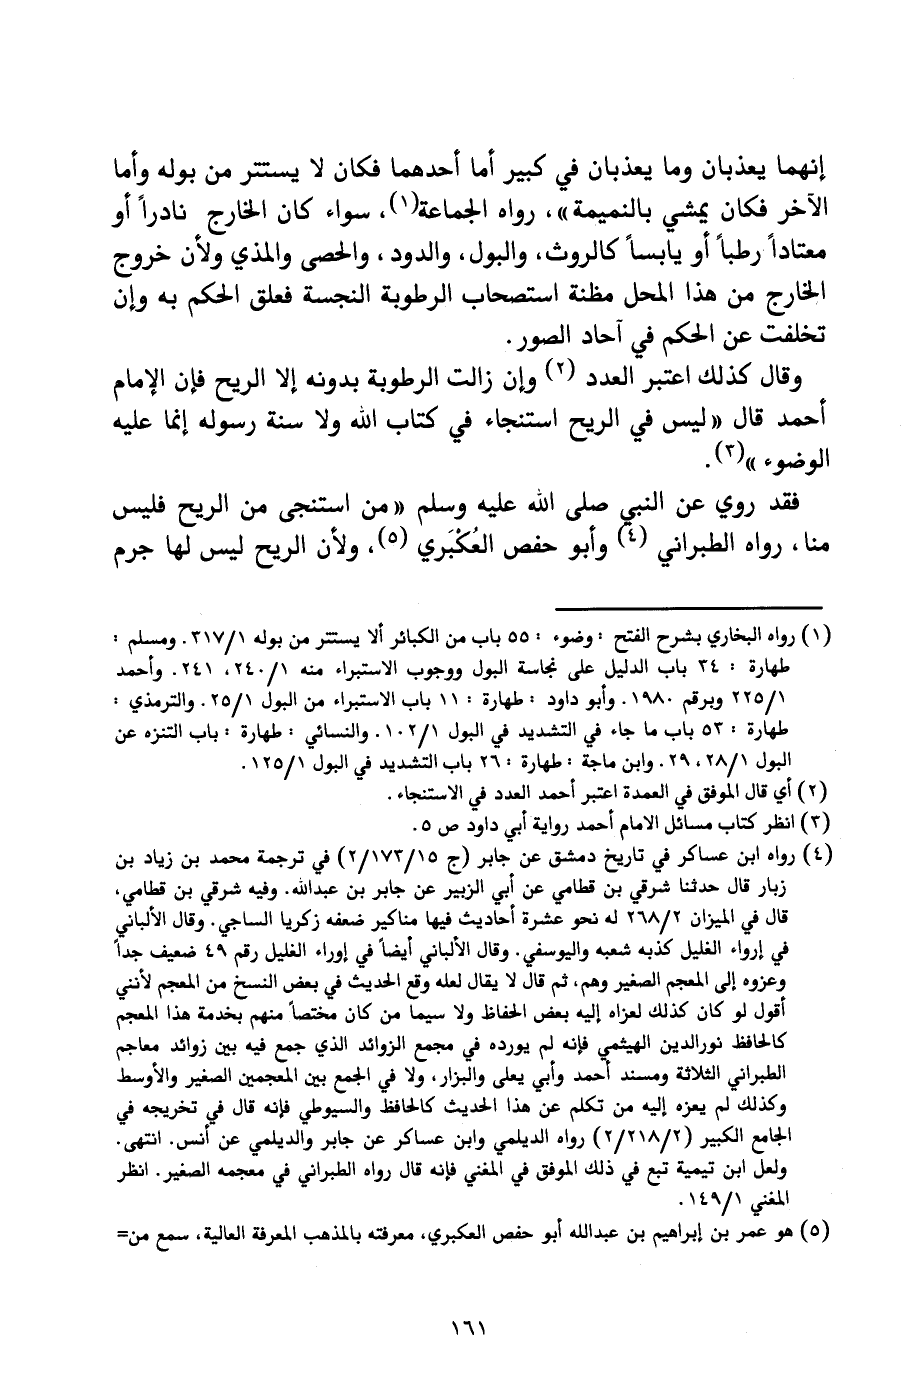 إنهما يعذبان وما يعذبان في كبير أما أحدهما فكان لا يستتر من بوله وأما
الآخر فكان يمشي بالنميمة»، رواه الجماعة(١)، سواء كان الخارج نادراً أو
معتاداً رطباً أو يابساً كالروث، والبول، والدود، والحصى والمذي ولأن خروج
الخارج من هذا المحل مظنة استصحاب الرطوبة النجسة فعلق الحكم به وإن
تخلفت عن الحكم في آحاد الصور.
وقال كذلك اعتبر العدد (٢) وإن زالت الرطوبة بدونه إلا الريح فإن الإمام
أحمد قال «ليس في الريح استنجاء في كتاب الله ولا سنة رسوله إنما عليه
الوضوء»(٣).
فقد روي عن النبي صلى الله عليه وسلم «من استنجى من الريح فليس
منا، رواه الطبراني (٤) وأبو حفص العُكْبَري (٥)، ولأن الريح ليس لها جرم
(١) رواه البخاري بشرح الفتح : وضوء : ٥٥ باب من الكبائر ألا يستتر من بوله ٣١٧/١. ومسلم :
طهارة : ٣٤ باب الدليل على نجاسة البول ووجوب الاستبراء منه ٢٤٠/١، ٢٤١. وأحمد
٢٢٥/١ وبرقم ١٩٨٠. وأبو داود : طهارة : ١١ باب الاستبراء من البول ٢٥/١. والترمذي :
طهارة : ٥٣ باب ما جاء في التشديد في البول ١٠٢/١. والنسائي : طهارة : باب التنزه عن
البول ٢٨/١، ٢٩. وابن ماجة : طهارة : ٢٦ باب التشديد في البول ١٢٥/١.
(٢) أي قال الموفق في العمدة اعتبر أحمد العدد في الاستنجاء.
(٣) انظر كتاب مسائل الامام أحمد رواية أبي داود ص ٥.
(٤) رواه ابن عساكر في تاريخ دمشق عن جابر (ج ٢/١٧٣/١٥) في ترجمة محمد بن زياد بن
زبار قال حدثنا شرقي بن قطامي عن أبي الزبير عن جابر بن عبدالله. وفيه شرقي بن قطامي،
قال في الميزان ٢٦٨/٢ له نحو عشرة أحاديث فيها مناكير ضعفه زكريا الساجي. وقال الألباني
في إرواء الغليل كذبه شعبه واليوسفي. وقال الألباني أيضاً في إوراء الغليل رقم ٤٩ ضعيف جداً
وعزوه إلى المعجم الصغير وهم، ثم قال لا يقال لعله وقع الحديث في بعض النسخ من المعجم لأنني
أقول لو كان كذلك لعزاه إليه بعض الحفاظ ولا سيما من كان مختصاً منهم بخدمة هذا المعجم
كالحافظ نورالدين الهيثمي فإنه لم يورده في مجمع الزوائد الذي جمع فيه بين زوائد معاجم
الطبراني الثلاثة ومسند أحمد وأبي يعلى والبزار، ولا في الجمع بين المعجمين الصغير والأوسط
وكذلك لم يعزه إليه من تكلم عن هذا الحديث كالحافظ والسيوطي فإنه قال في تخريجه في
الجامع الكبير (٢/٢١٨/٢) رواه الديلمي وابن عساكر عن جابر والديلمي عن أنس. انتهى.
ولعل ابن تيمية تبع في ذلك الموفق في المغني فإنه قال رواه الطبراني في معجمه الصغير. انظر
المغني ١٤٩/١.
(٥) هو عمر بن إبراهيم بن عبدالله أبو حفص العكبري، معرفته بالمذهب المعرفة العالية، سمع من=
١٦١